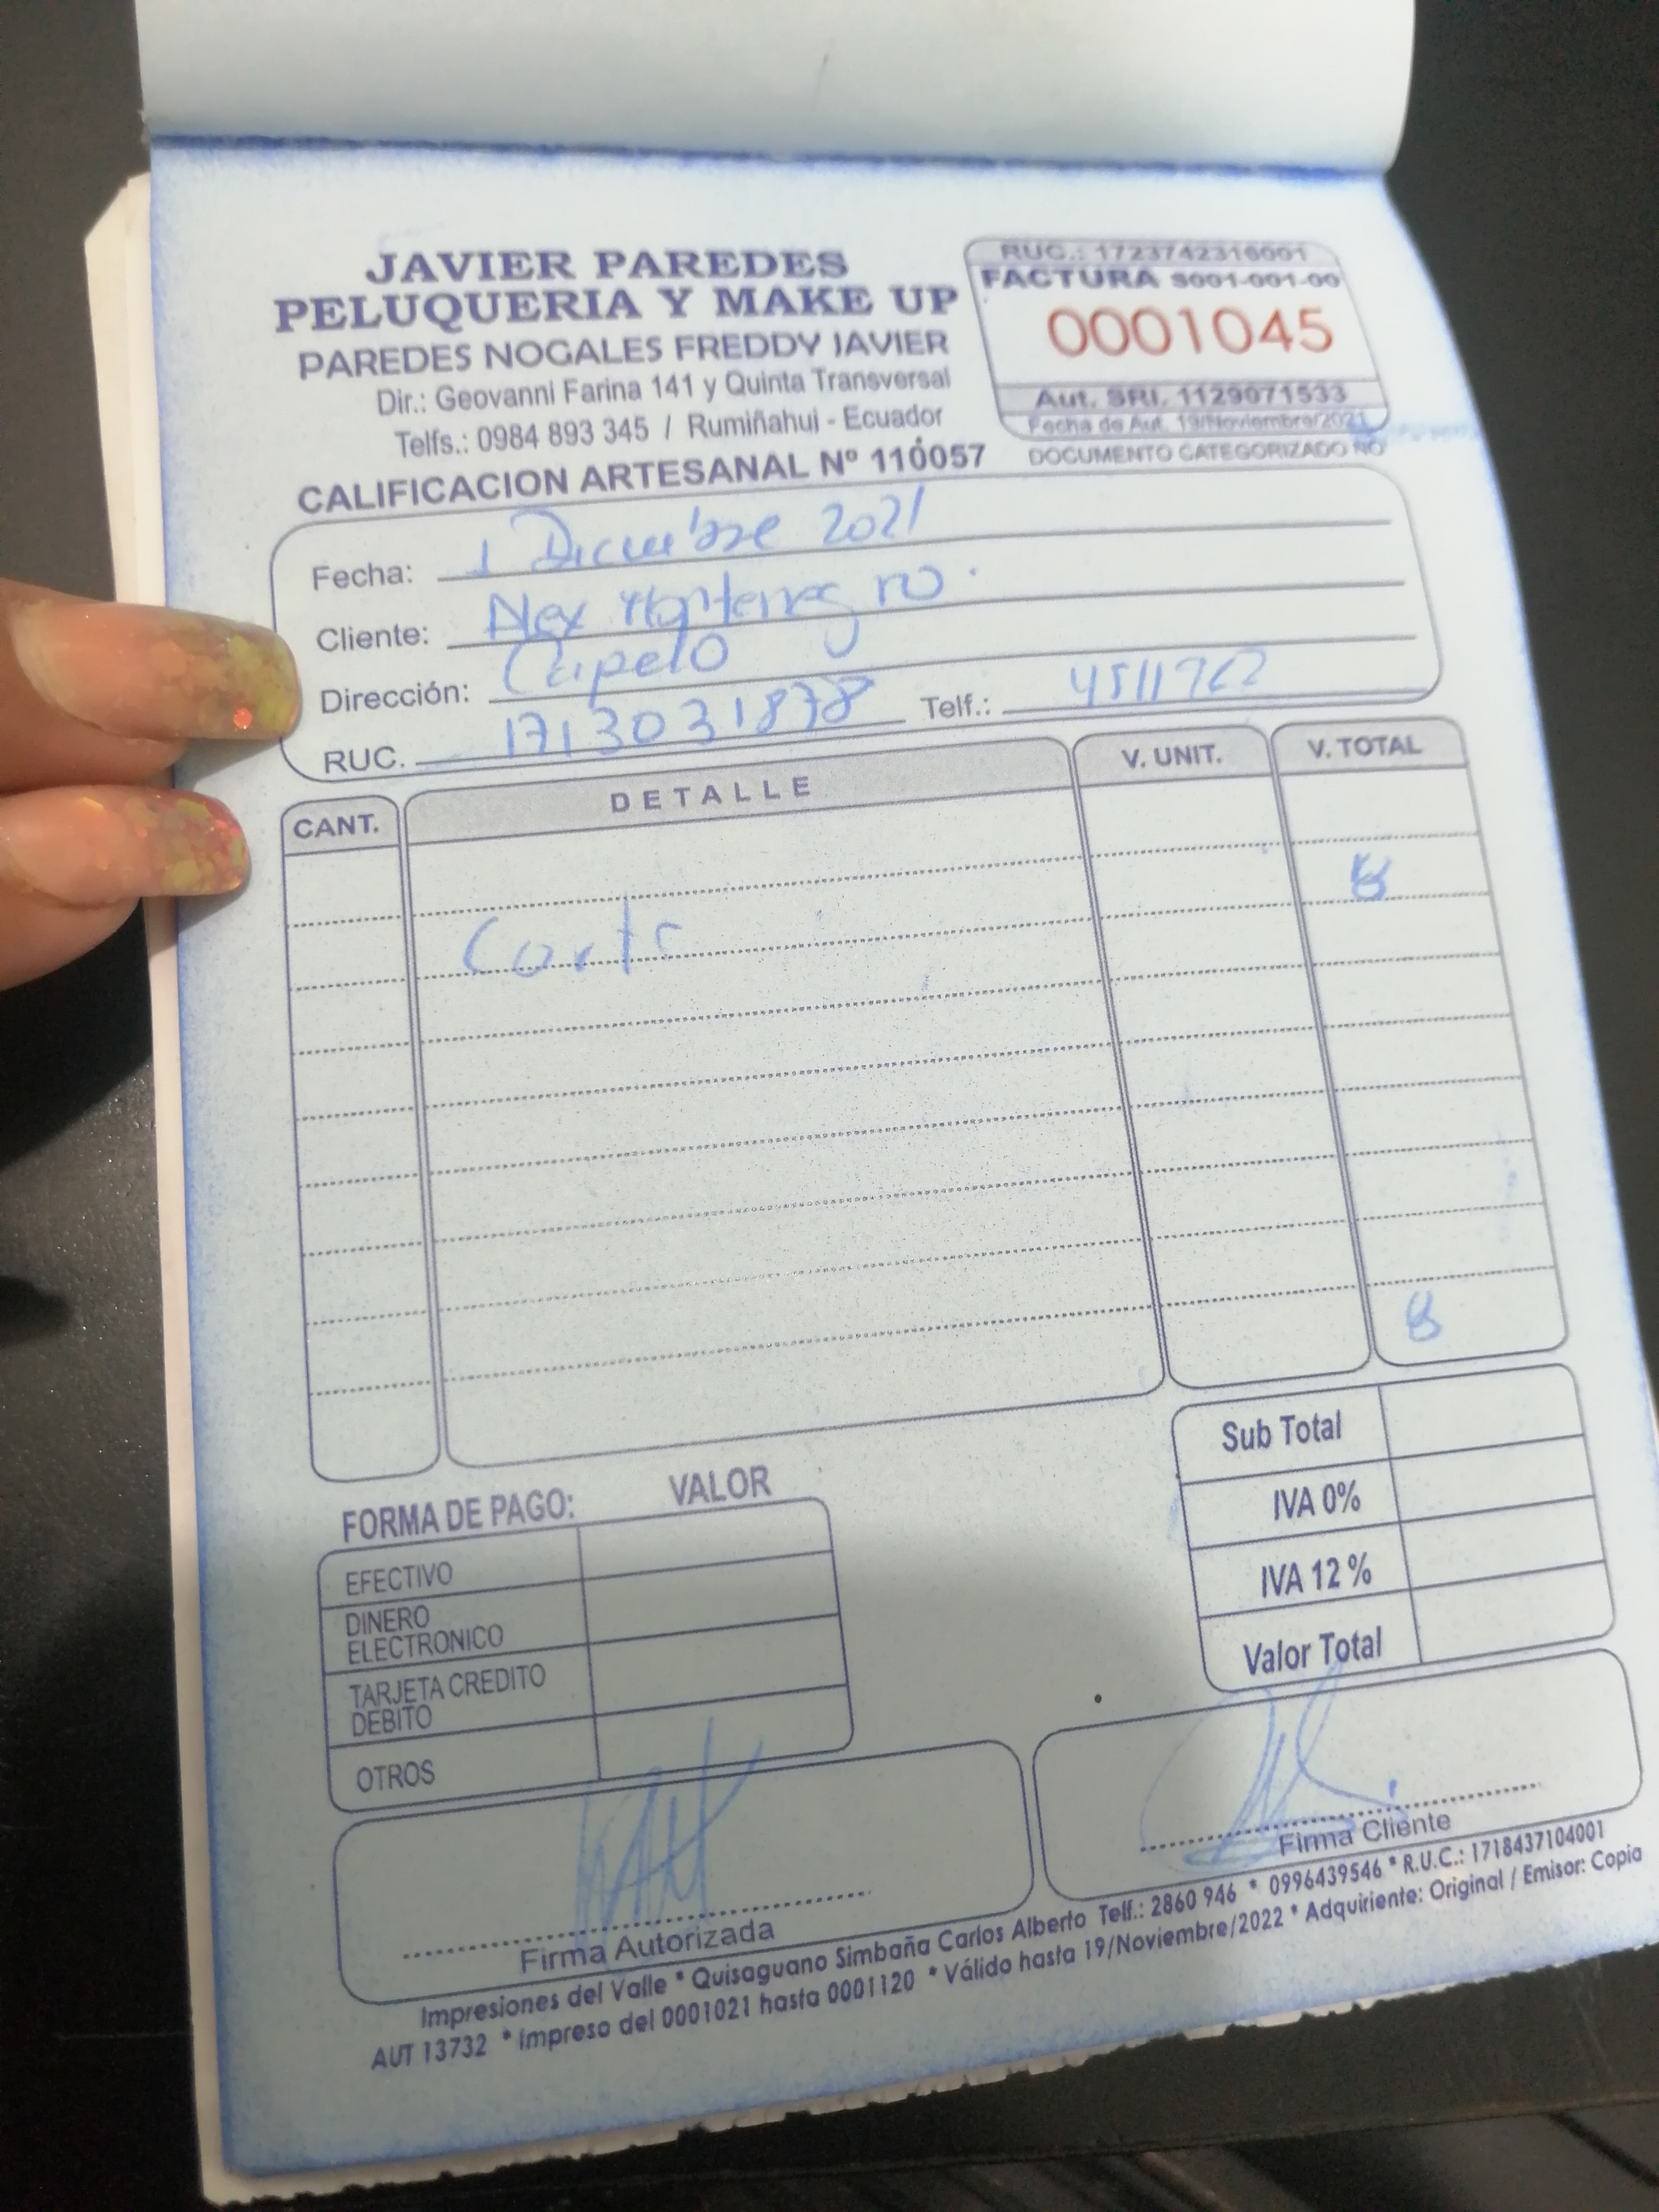 JAVIER PAREDES
PELUQUERIA Y MAKE UP
PAREDES NOGALES FREDDY JAVIER
Dir.: Geovanni Farina 141 y Quinta Transversal
Telfs.: 0984 893 345 / Rumiñahui - Ecuador
CALIFICACION ARTESANAL Nº 110057
RUC.: 1723742316001
FACTURA S001-001-00
0001045
Aut. SRI. 1129071533
Fecha de Aut. 19/Noviembre/2021
DOCUMENTO CATEGORIZADO NO
Fecha: 1 Diciembre 2021
Cliente: Alex Montenegro.
Dirección: Capelo
RUC. 1713031878 Telf.:
CANT. DETALLE V. UNIT. V. TOTAL
Corte 8
8
Sub Total
IVA 0%
IVA 12 %
Valor Total
FORMA DE PAGO: VALOR
EFECTIVO
DINERO
ELECTRONICO
TARJETA CREDITO
DEBITO
OTROS
Firma Autorizada
Firma Cliente
Impresiones del Valle * Quisaguano Simbaña Carlos Alberto Telf.: 2860 946 * 0996439546 * R.U.C.: 1718437104001
AUT 13732 * Impreso del 0001021 hasta 0001120 * Válido hasta 19/Noviembre/2022 * Adquiriente: Original / Emisor: Copia